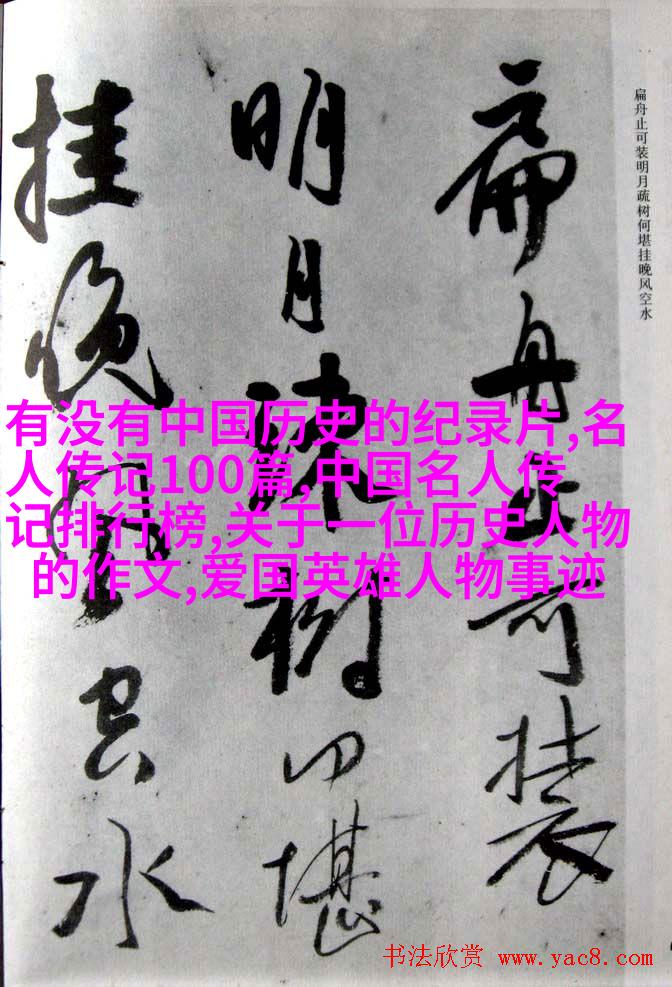 扁舟止可装
明月疏树何堪
挂晚风空水
扁舟止可装明月疏树何堪挂晚风空水
有没有中国历史的纪录片,名
人传记100篇,中国名人传
记排行榜,关于一位历史人物
的作文,爱国英雄人物事迹
书法欣赏 www.yac8.com